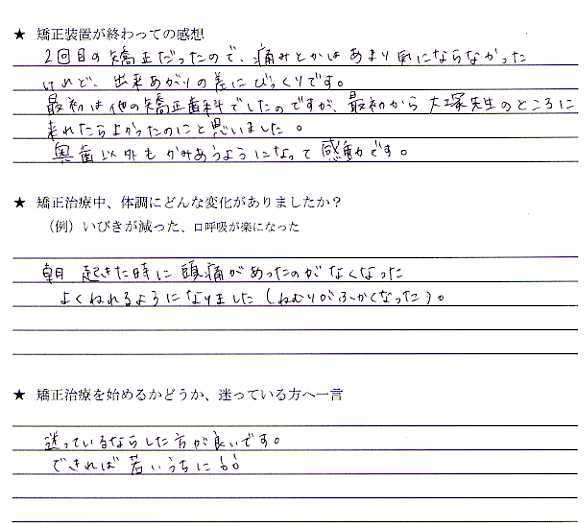 ★ 矯正装置が終わっての感想
2回目の矯正だったので、痛みとかはあまり気にならなかった
けれど、出来あがりの差にびっくりです。
最初は他の矯正歯科でしたのですが、最初から大塚先生のところに
来れたらよかったのにと思いました。
奥歯以外もかみあうようになって感動です。
★ 矯正治療中、体調にどんな変化がありましたか?
(例)いびきが減った、口呼吸が楽になった
朝起きた時に頭痛があったのがなくなった
よくねれるようになりました(ねむりがふかくなった)。
★ 矯正治療を始めるかどうか、迷っている方へ一言
迷っているならした方が良いです。
できれば若いうちに